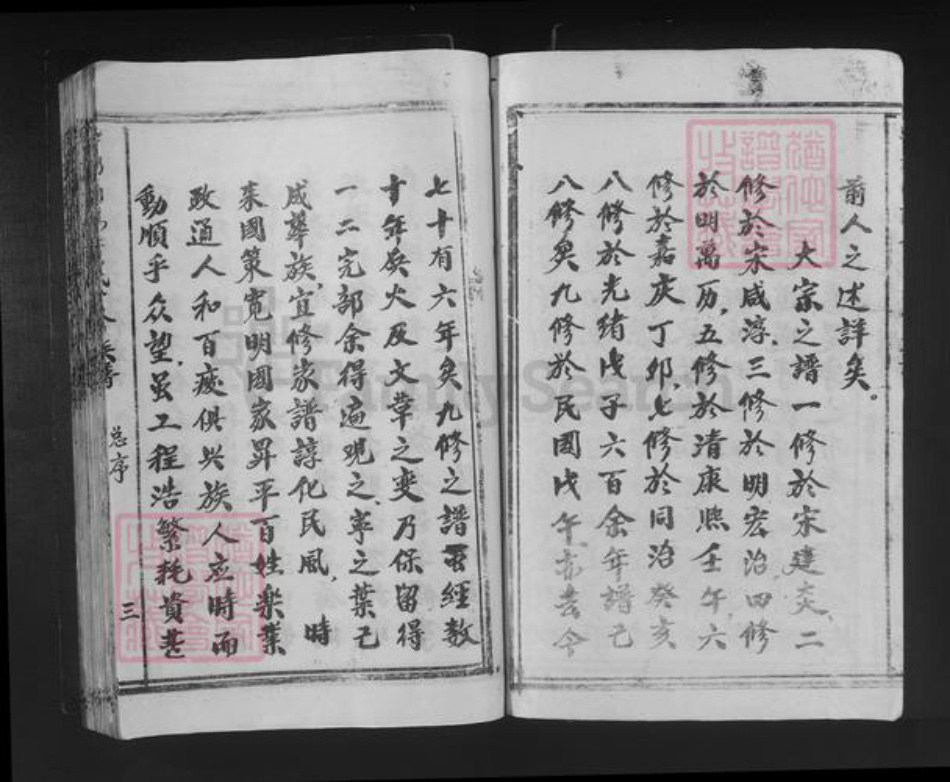 前人之述詳矣。
大宗之譜一修於宋建炎、二
修於宋咸淳、三修於明宏治、四修
於明萬历、五修於清康熙壬午、六
修於嘉庆丁卯、七修於同治癸亥
八修於光緒戊子六百余年譜已
八修矣九修於民國戊午、亦去今
七十有六年矣九修之譜雖經数
十年兵火及文革之变乃保留得
一二完部余得遍观之、寧之葉己
咸舉族宜修家譜諄化民風、時
来國策寛明國家昇平百姓楽業
政通人和百废俱兴族人应時而
動順乎众望、虽工程浩繁耗資甚
总序
三
FamilySearch